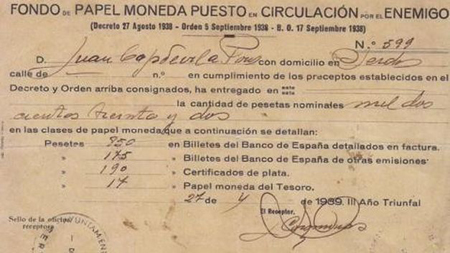 FONDO DE PAPEL MONEDA PUESTO EN CIRCULACIÓN POR EL ENEMIGO
(Decreto 27 Agosto 1938 - Orden 5 Septiembre 1938 - B. O. 17 Septiembre 1938)
N.º 599
D. Juan Capdevila con domicilio en
calle de n.º en cumplimiento de los preceptos establecidos en el
Decreto y Orden arriba consignados, ha entregado en este
este
la cantidad de pesetas nominales mil dos
cientos treinta y dos
en las clases de papel moneda que a continuación se detallan:
Pesetas 850 en Billetes del Banco de España detallados en factura.
» 175 en Billetes del Banco de España de otras emisiones.
» 190 Certificados de plata.
» 17 Papel moneda del Tesoro.
27 de 4 de 1939. III Año Triunfal
Sello de la oficina
receptora
El Receptor,